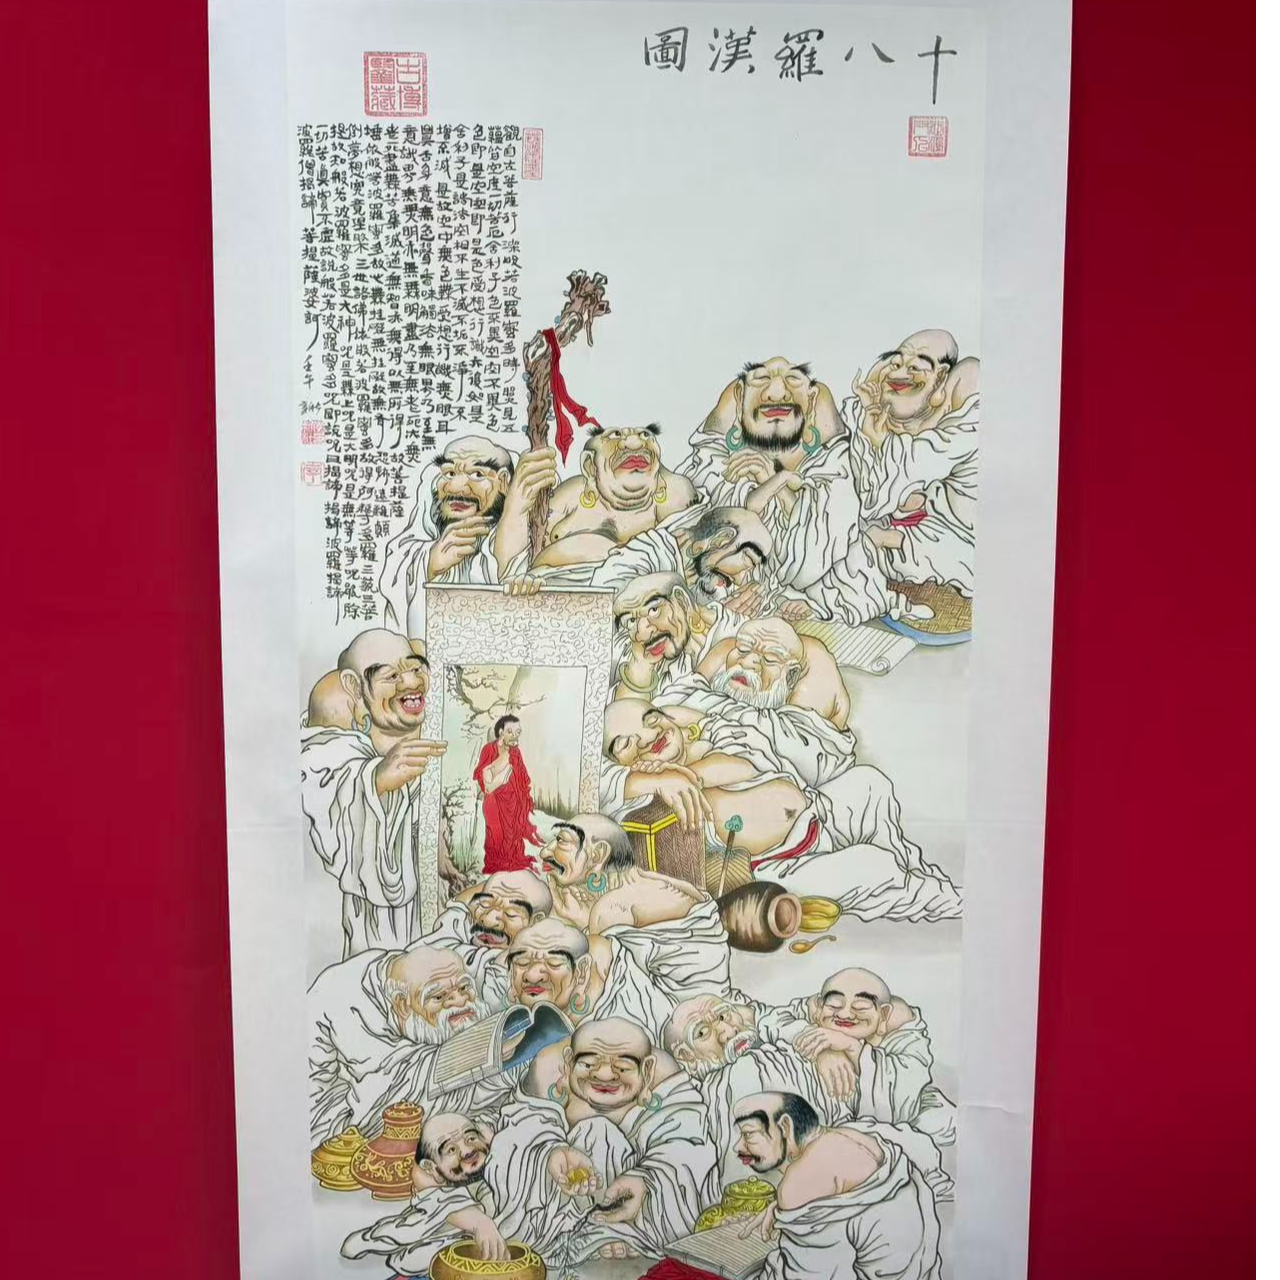 十八羅漢圖
觀自在菩薩行深般若波羅蜜多時照見五
蘊皆空度一切苦厄舍利子色不異空空不異色
色即是空空即是色受想行識亦復如是
舍利子是諸法空相不生不滅不垢不淨不
增不減是故空中無色無受想行識無眼耳
鼻舌身意無色聲香味觸法無眼界乃至無
意識界無無明亦無無明盡乃至無老死亦無
老死盡無苦集滅道無智亦無得以無所得故菩提薩
埵依般若波羅蜜多故心無罣礙無罣礙故無有恐怖遠離顛
倒夢想究竟涅槃三世諸佛依般若波羅蜜多故得阿耨多羅三藐三菩
提故知般若波羅蜜多是大神咒是無上咒是大明咒是無等等咒能除
一切苦真實不虛故說般若波羅蜜多咒即說咒曰揭諦揭諦波羅揭諦
波羅僧揭諦菩提薩婆訶 壬午
古博鑒藏